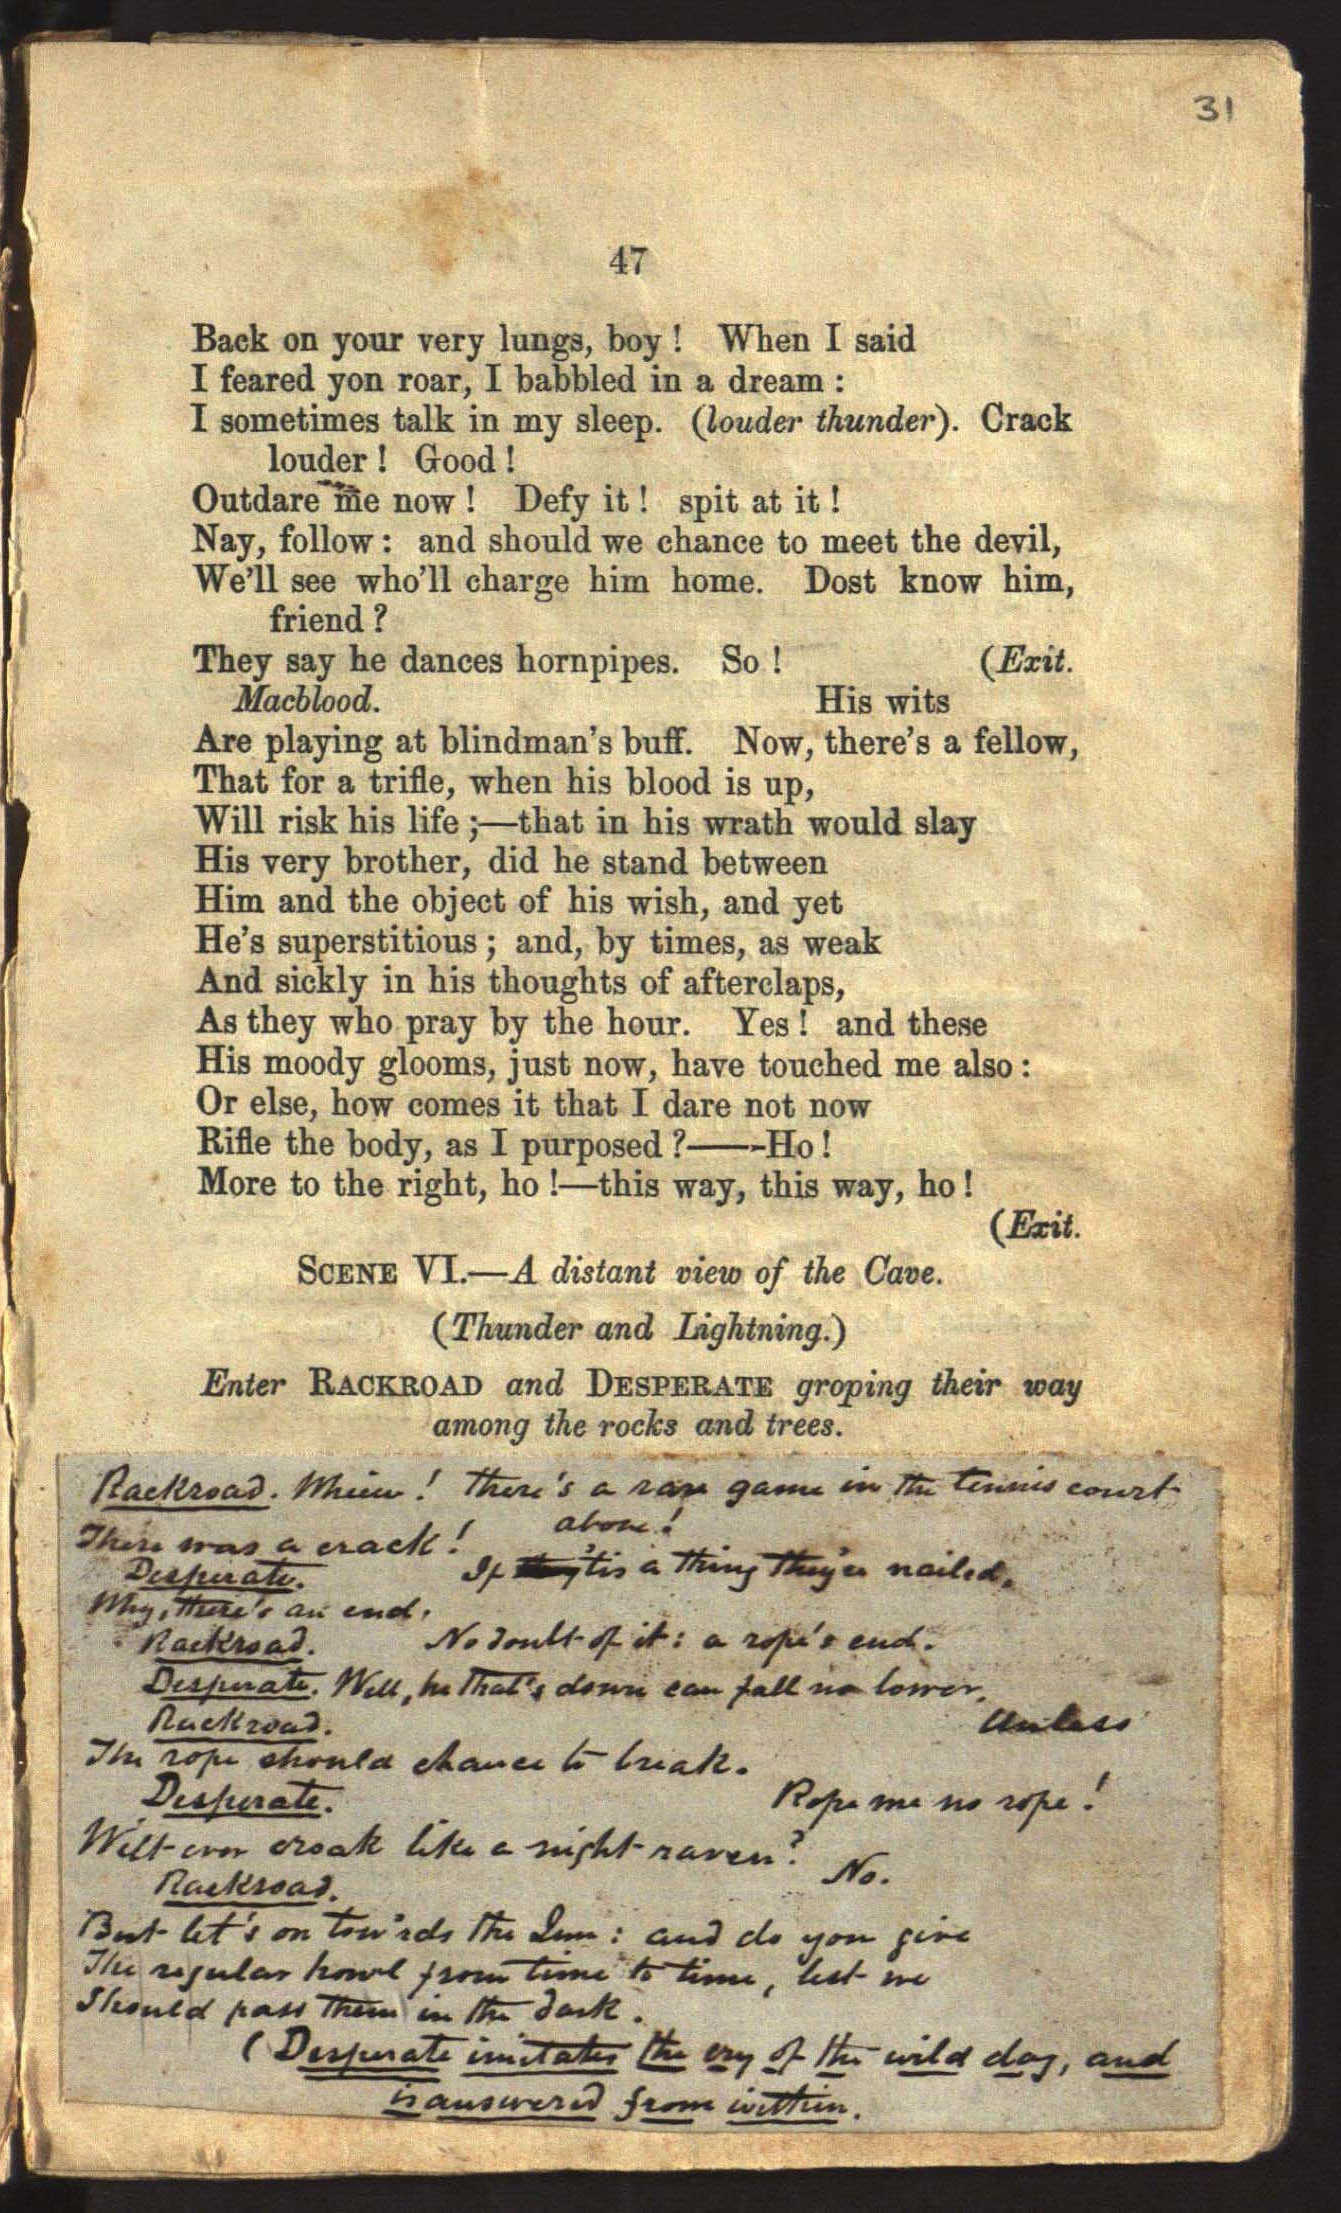 31
47
Back on your very lungs, boy! When I said
I feared yon roar, I babbled in a dream :
I sometimes talk in my sleep. (louder thunder). Crack
louder! Good!
Outdare me now! Defy it! spit at it!
Nay, follow: and should we chance to meet the devil,
We'll see who'll charge him home. Dost know him,
friend?
They say he dances hornpipes. So! (Exit.
Macblood. His wits
Are playing at blindman's buff. Now, there's a fellow,
That for a trifle, when his blood is up,
Will risk his life;—that in his wrath would slay
His very brother, did he stand between
Him and the object of his wish, and yet
He's superstitious; and, by times, as weak
And sickly in his thoughts of afterclaps,
As they who pray by the hour. Yes! and these
His moody glooms, just now, have touched me also:
Or else, how comes it that I dare not now
Rifle the body, as I purposed?——-Ho!
More to the right, ho!—this way, this way, ho!
(Exit.
SCENE VI.—A distant view of the Cave.
(Thunder and Lightning.)
Enter RACKROAD and DESPERATE groping their way
among the rocks and trees.
Rackroad. Whiew! There's a rare game in the tennis court
above!
There was a crack!
Desperate. If 'tis a thing they've nailed,
Why, there's an end.
Rackroad. No doubt of it: a rope's end.
Desperate. Well, he that's down can fall no lower.
Rackroad. Unless
The rope should chance to break.
Desperate. Rope me no rope!
Wilt ever croak like a night raven?
Rackroad. No.
But let's on tow'rds the Inn: and do you give
The regular howl from time to time, lest we
Should pass them in the dark.
(Desperate imitates the cry of the wild dog, and
is answered from within.